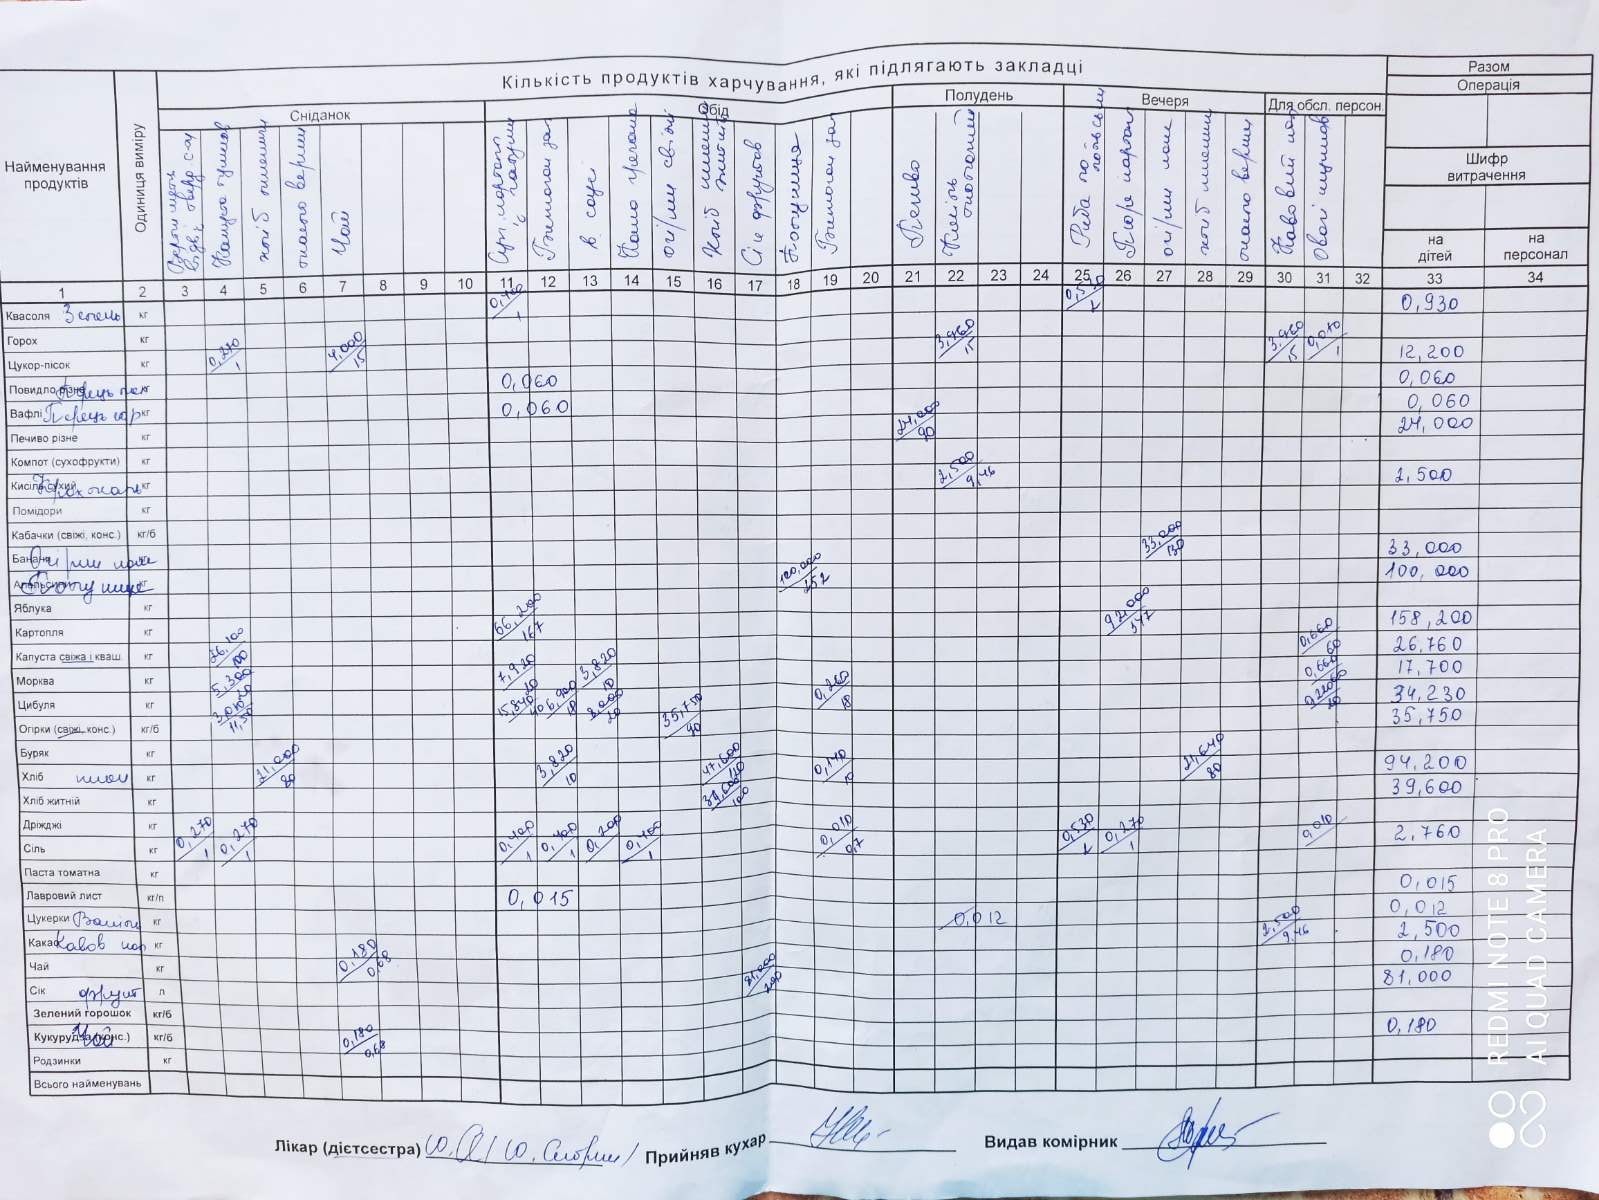 Кількість продуктів харчування, які підлягають закладці
Разом
Операція
Найменування продуктів
Одиниця виміру
Сніданок
Обід
Полудень
Вечеря
Для обсл. персон.
Шифр витрачення
на дітей
на персонал
Капуста тушков
хліб пшеничн
масло вершк
Чай
Каша гречана
огірки свіжі
Сік фруктов
Печиво
Кисіль
Риба по
Пюре картоп
огірки
хліб пшенич
масло верш
1 2 3 4 5 6 7 8 9 10 11 12 13 14 15 16 17 18 19 20 21 22 23 24 25 26 27 28 29 30 31 32 33 34
Квасоля Зелень кг 0,400/1 0,530/2 0,930
Горох кг
Цукор-пісок кг 0,270/1 4,000/15 3,960/15 3,960/15 0,010/1 12,200
Повидло різне кг 0,060 0,060
Вафлі Перець гор кг 0,060 0,060
Печиво різне кг 24,000/90 24,000
Компот (сухофрукти) кг
Кисіль сухий Крохмаль кг 2,500/9,46 2,500
Помідори кг
Кабачки (свіжі, конс.) кг/б
Банани Огірки кг 33,000/130 33,000
Апельсини кг 100,000/252 100,000
Яблука кг
Картопля кг 66,200/167 92,000/347 158,200
Капуста свіжа і кваш. кг 26,100/100 0,660/60 26,760
Морква кг 5,300/20 7,920/20 3,820/10 0,660 17,700
Цибуля кг 3,040/11,50 15,840/40 6,900/18 8,000/20 0,260/18 34,230
Огірки (свіжі, конс.) кг/б 35,750/90 35,750
Буряк кг
Хліб пшен кг 21,000/80 3,820/10 47,600/120 0,140/10 21,640/80 94,200
Хліб житній кг 39,600/100 39,600
Дріжджі кг
Сіль кг 0,270/1 0,270/1 0,400/1 0,400/1 0,200 0,400/1 0,010/0,7 0,530/2 0,270/1 0,010 2,760
Паста томатна кг
Лавровий лист кг/п 0,015 0,015
Цукерки Ванілін кг 0,012 0,012
Какао Кавов нап кг 2,500/9,46 2,500
Чай кг 0,180/0,68 0,180
Сік фрукт л 81,000/200 81,000
Зелений горошок кг/б
Кукурудза (конс.) Чай кг/б 0,180/0,68 0,180
Родзинки кг
Всього найменувань
Лікар (дієтсестра) Прийняв кухар Видав комірник
REDMI NOTE 8 PRO
AI QUAD CAMERA